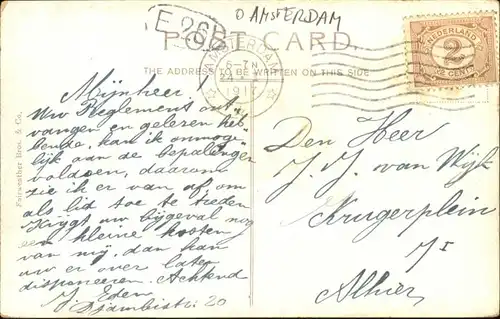 E 26B
O AMSTERDAM
POST CARD.
THE ADDRESS TO BE WRITTEN ON THIS SIDE
AMSTERDAM
6-7N
1917
NEDERLAND
2
2 CENT
Fairweather Bros. & Co.
Mijnheer.
Uw Reglement ont-
vangen en gelezen heb-
bende, kan ik onmoge-
lijk aan de bepalingen
voldoen, daarom
zie ik er van af, om
als lid toe te treden
Krijgt uw bijgeval nog
een kleine kosten
van mij, dan kan
uw er over later
disponeeren. Achtend
J. Eden
Djambistr. 20
Den Heer
J. J. van Wijk
Krugerplein
Alhier